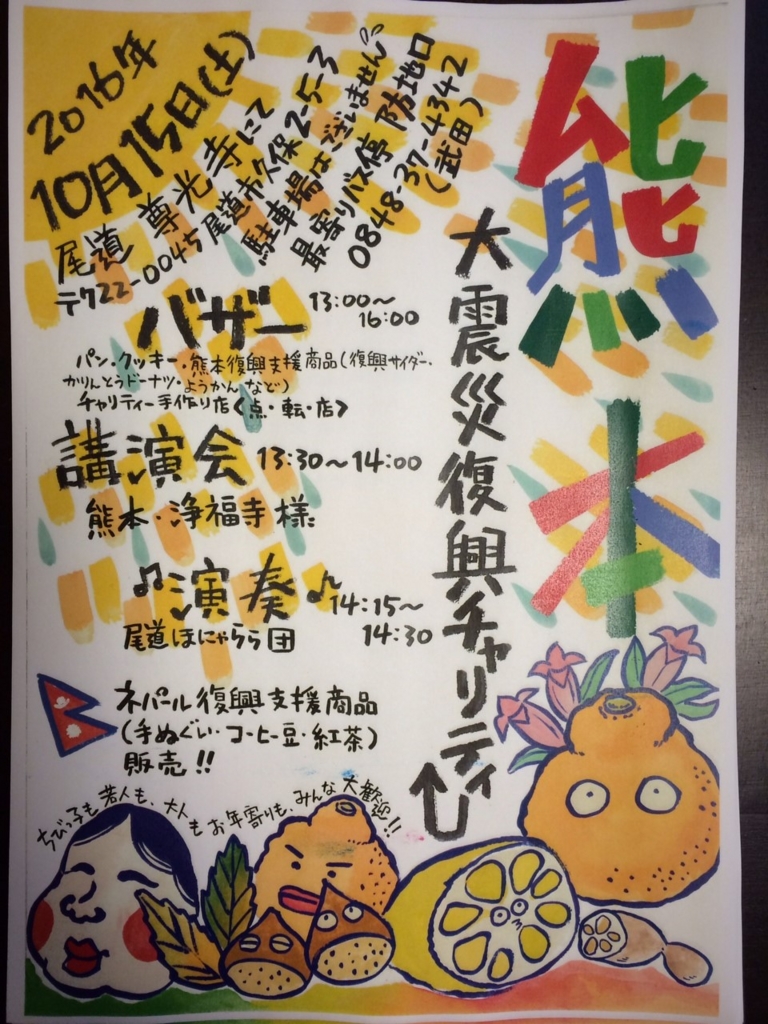 熊本
大震災復興チャリティ
2016年
10月15日(土)
尾道 尊光寺にて
〒722-0045 尾道市久保2-5-3
駐車場はございません
最寄りバス停 防地口
0848-37-4342
(武田)
バザー 13:00〜
16:00
パン・クッキー・熊本復興支援商品(復興サイダー・
かりんとうドーナツ・ようかん など)
チャリティー手作り店<点・転・店>
講演会 13:30〜14:00
熊本・浄福寺様
♫演奏♪ 14:15〜
14:30
尾道ほにゃらら団
ネパール復興支援商品
(手ぬぐい・コーヒー豆・紅茶)
販売!!
ちびっ子も若人も、大人もお年寄りも、みんな大歓迎!!